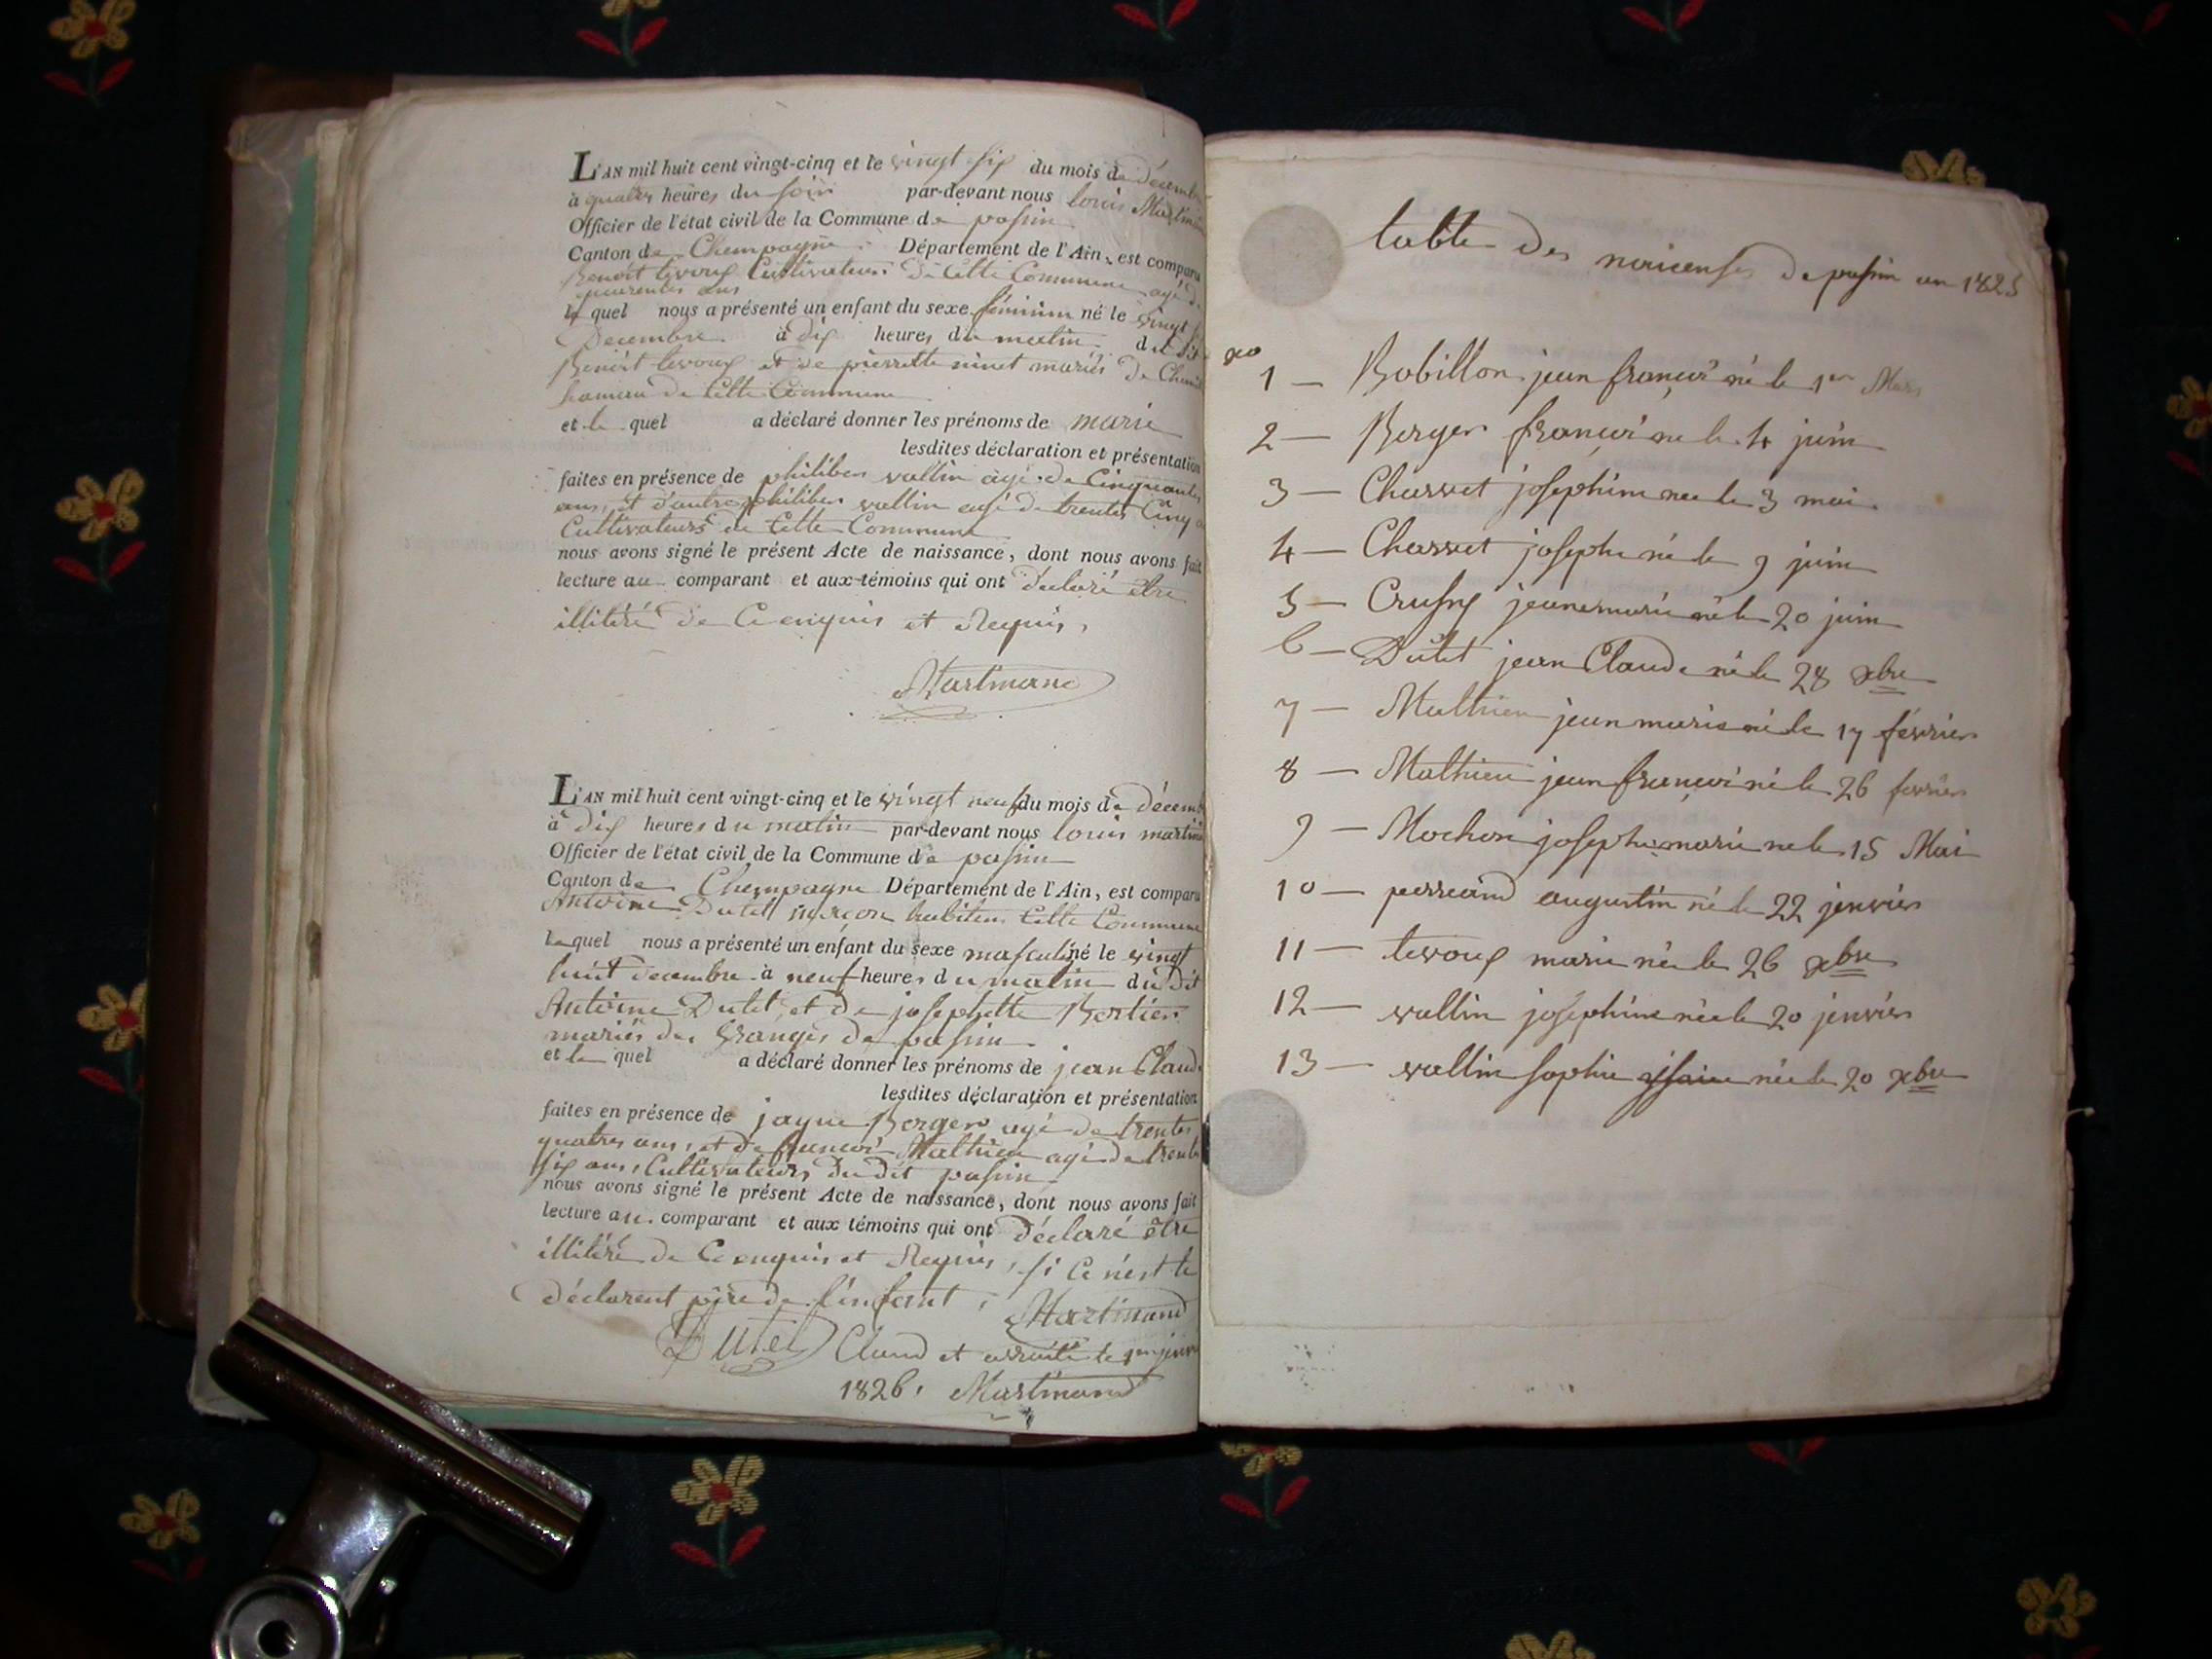 L'AN mil huit cent vingt-cinq et le vingt six du mois de décembre
à quatres heures du soir par-devant nous louis Martinand
Officier de l'état civil de la Commune de passin
Canton de Champagne Département de l'Ain, est comparu
Benoit levoux Cultivateur de Cette Commune agé de
quarentes ans
le quel nous a présenté un enfant du sexe féminim né le vingt
Decembre à dix heures du matin du dit
Benoit levoux et de pierrette ninet mariés de
hameau de Cette Commune
et le quel a déclaré donner les prénoms de marie
lesdites déclaration et présentation
faites en présence de philiber vallin agé de Cinquantes
ans, et d'autre philiber vallin agé de trentes Cinq
Cultivateurs de Cette Commune
nous avons signé le présent Acte de naissance, dont nous avons fait
lecture au comparant et aux témoins qui ont déclaré être
illitéré de Ce enquis et Requis,
Martinand
L'AN mil huit cent vingt-cinq et le vingt neuf du mois de décem
à dix heures du matin par-devant nous louis martin
Officier de l'état civil de la Commune de passin
Canton de Champagne Département de l'Ain, est comparu
Antoine Dutel maçon habitem Cette Commune
le quel nous a présenté un enfant du sexe masculin né le vingt
huit decembre à neuf heures du matin du dit
Antoine Dutel, et de josephette Bertier
mariés des Granges de passin
et le quel a déclaré donner les prénoms de jean Claud
lesdites déclaration et présentation
faites en présence de jaque Berger agé de trentes
quatres ans, et de françoi Mathieu agé de trente
six ans, Cultivateurs du dit passin
nous avons signé le présent Acte de naissance, dont nous avons fait
lecture au comparant et aux témoins qui ont déclaré être
illitéré de Ce enquis et Requis, si ce n'est le
déclarent père de l'enfant, Martinand
Dutel Claud et arreité le 1er
1826, Martinand
table des naicenses de passin en 1825
no
1 — Bobillon jean françoi né le 1er Mars
2 — Berger françoi né le 4 juin
3 — Charvet josephine née le 3 mai
4 — Charvet josephe né le 9 juin
5 — jeanemarie né le 20 juin
6 — Dutel jean Claude né le 28 xbre
7 — Mathieu jean marie né le 17 février
8 — Mathieu jean françoi né le 26 fevrier
9 — Mochon josephe marie né le 15 Mai
10 — perreand augustin né le 22 jenvier
11 — levoux marie née le 26 xbre
12 — vallin josephine née le 20 jenvier
13 — vallin sophie née le 20 xbre